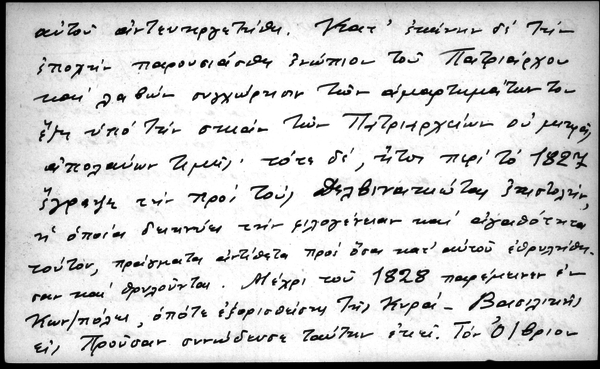 αὐτοῦ ἀντευηργετήθη. Κατ' ἐκείνην δὲ τὴν
ἐποχὴν παρουσιάσθη ἐνώπιον τοῦ Πατριάρχου
καὶ λαβὼν συγχώρησιν τῶν ἁμαρτημάτων του
ἔζη ὑπὸ τὴν σκιὰν τῶν Πατριαρχείων οὐ μικρᾶς
ἀπολαύων τιμῆς· τότε δέ, ἤτοι περὶ τὸ 1827
ἔγραψε τὴν πρὸς τοὺς Δελβινακιώτας ἐπιστολήν,
ἡ ὁποία δεικνύει τὴν φιλογένειαν καὶ ἀγαθότητα
τούτου, πράγματα ἀντίθετα πρὸς ὅσα κατ' αὐτοῦ ἐθρυλήθη-
σαν καὶ θρυλοῦνται. Μέχρι τοῦ 1828 παρέμεινεν ἐν
Κων/πόλει, ὁπότε ἐξορισθείσης τῆς Κυρᾶ - Βασιλικῆς
εἰς Προῦσαν συνώδευσε ταύτην ἐκεῖ. Τὸν Ὀ/βριον